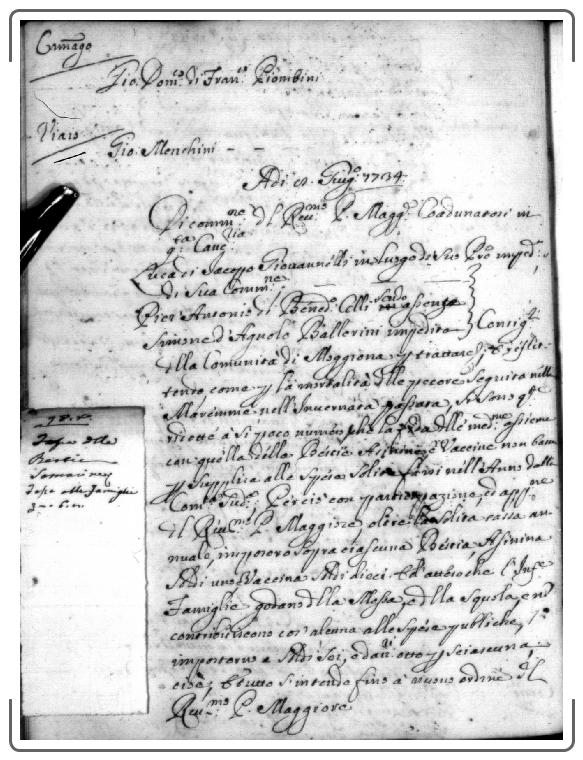 Camago
Gio: Dom:co di Fran:co Piombini
Viaio
Gio: Menchini - -
Adi 12. Giug:o 1734
Di comm:ne d'l Reu:mo P. Magg:e Coadunatosi in
q:ta Canc:ria
Luca di Jacopo Giovannelli in luogo di Suo P:re imped:o
di Sua Comm:ne
Pier' Antonio di Bened:o Celli assenza
Simone d'Agnolo Ballerini impedito
Consig:ri
alla Comunità di Moggiona p trattare
tendo come p la mortalità delle pecore Seguita nella
Maremma nell'Invernata passata, Si sono
ridotte à sì poco numero assieme
con quella delle Bestie Asinine e Vaccine non basta
p Supplire alle Spese Solite farsi nell'Anno dalla
Com:tà Sud:a Perciò con partecipazione, ed app:ne
il Reu:mo P. Maggiore oltre la Solita tassa an-
nuale, imposero Sopra ciascuna Bestia Asinina
Soldi uno Vaccina Soldi dieci. Ed' auuto che
Famiglie godano della Messa, e della Squola, e n̄
contribuiscono con' alcuna alle Spese publiche,
imposero a Soldi Sei, e dan:ri otto p ciascuna
e tutto s'intenda fino à nuouo ordine d'l
Reu:mo P. Maggiore
Tassa delle
Bestie
Somarine
Tassa alle Famiglie